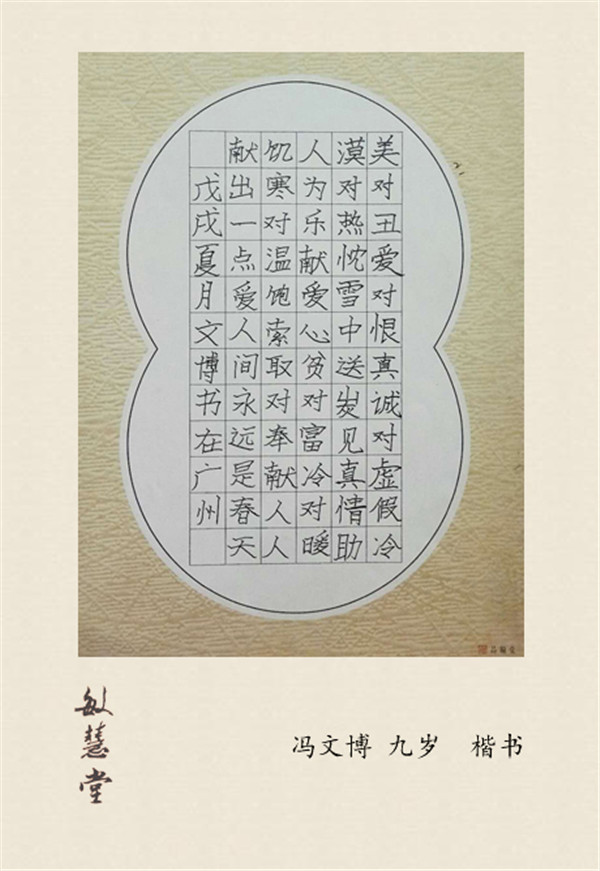 美对丑爱对恨真诚对虚假冷
漠对热忱雪中送炭见真情助
人为乐献爱心贫对富冷对暖
饥寒对温饱索取对奉献人人
献出一点爱人间永远是春天
戊戌夏月文博书在广州
敏慧堂
冯文博 九岁 楷书